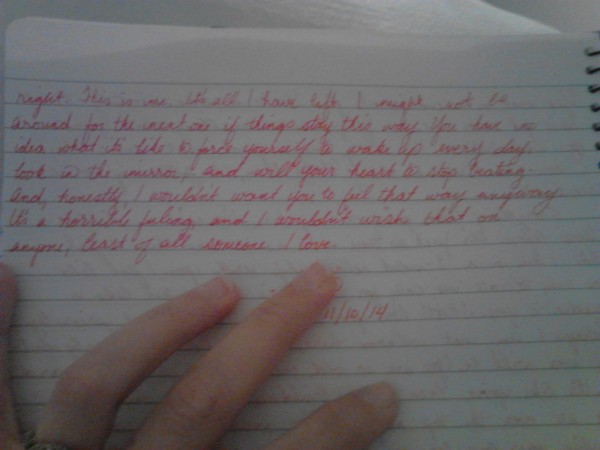 right. This is me. It's all I have left. I might not be
around for the next one if things stay this way. You have no
idea what it's like to force yourself to wake up every day,
look in the mirror, and will your heart to stop beating.
And, honestly, I wouldn't want you to feel that way anyway.
It's a horrible feeling, and I wouldn't wish that on
anyone, least of all someone I love.
11/10/14